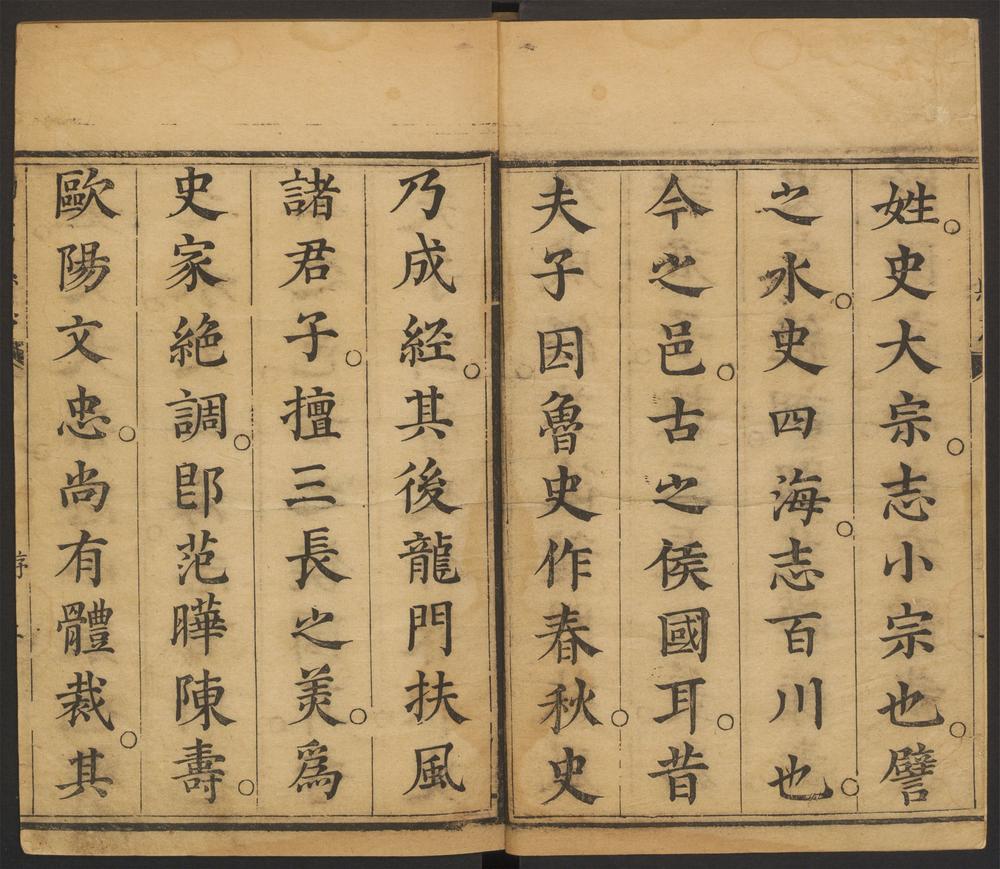 姓○史大宗○志小宗也○譬
之水○史四海○志百川也○
今之邑○古之侯國耳○昔
夫子因魯史作春秋○史
乃成経○其後龍門扶風
諸君子○擅三長之羙○為
史家絶調○卽范曄陳壽○
歐陽文忠○尚有體裁○其
序